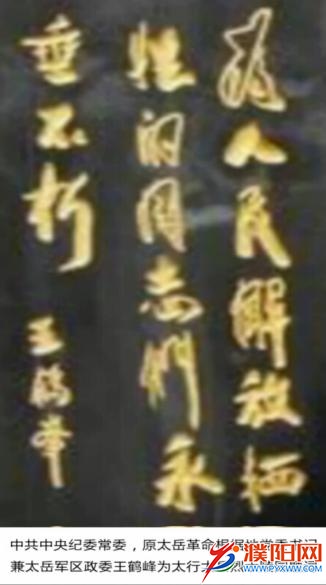 为人民解放牺
牲的同志們永
垂不朽
王鹤峯
中共中央纪委常委，原太岳革命根据地党委书记
兼太岳军区政委王鹤峰为太行太岳烈士陵园题词
濮阳网